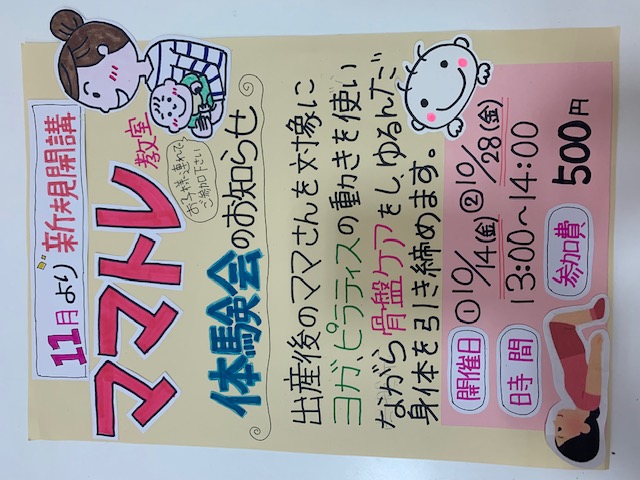 11月より新規開講
ママトレ教室
お子様連れで、
ご参加下さい
体験会のお知らせ
出産後のママさんを対象に
ヨガ、ピラティスの動きを使い
ながら骨盤ケアをし、ゆるんだ
身体を引き締めます。
開催日 ①10/14(金) ②10/28(金)
時間 13:00〜14:00
参加費 500円